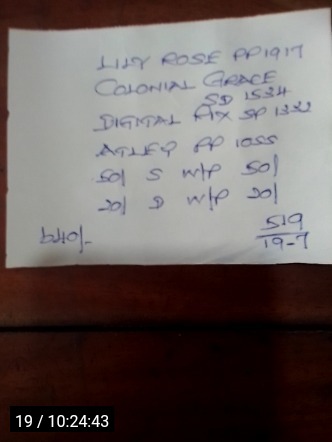 LILY ROSE PP1917
COLONIAL GRACE
SD 1534
DIGITAL FIX SP 1332
ATLEQ PP 1055
50/ S W/P 50/
20/ D W/P 20/
519
19-7
19 / 10:24:43